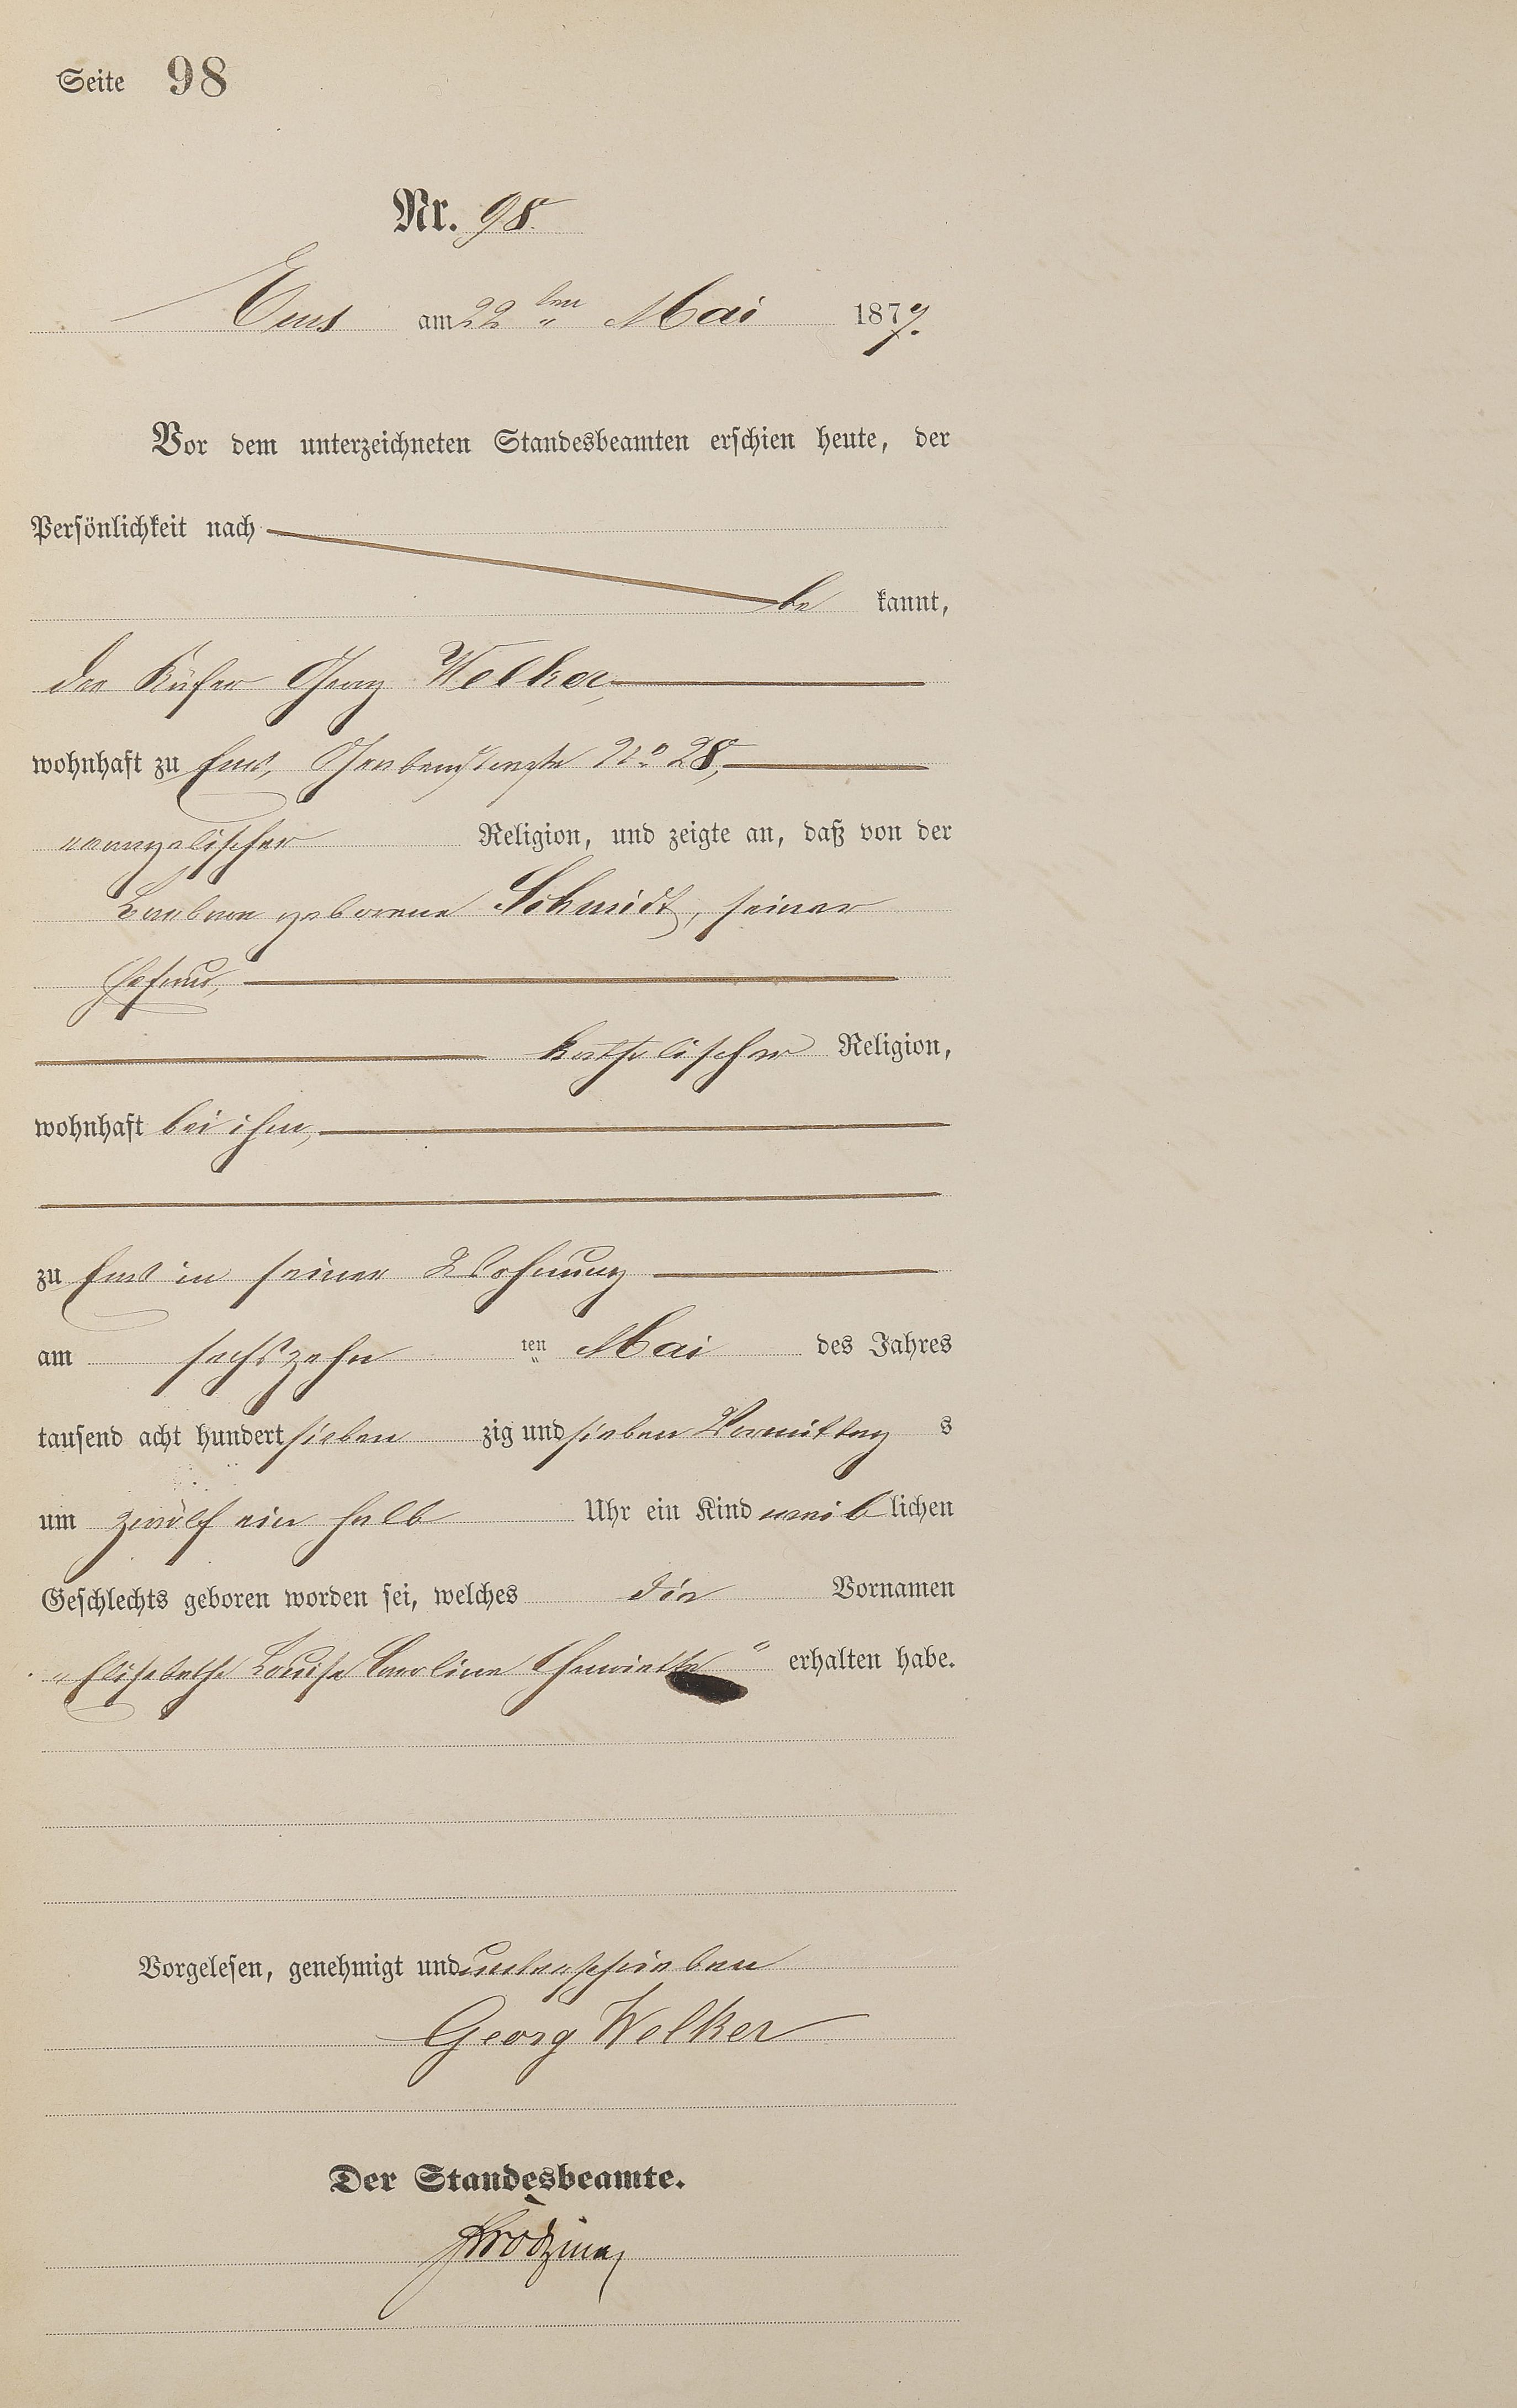 Seite 98
Nr. 98.
Ems am 22ten Mai 1877.
Vor dem unterzeichneten Standesbeamten erschien heute, der
Persönlichkeit nach
be kannt,
der Küfer Georg Welker,
wohnhaft zu Ems, Grabenstraße No. 28,
evangelischer Religion, und zeigte an, daß von der
Barbara geborene Schmidt, seiner
Ehefrau,
katholischer Religion,
wohnhaft bei ihm,
zu Ems in seiner Wohnung
am sechszehn ten Mai des Jahres
tausend acht hundert sieben zig und sieben Vormittag s
um zwölf ein halb Uhr ein Kind weib lichen
Geschlechts geboren worden sei, welches die Vornamen
"Elisabethe Louise Caroline Henriette" erhalten habe.
Vorgelesen, genehmigt und unterschrieben
Georg Welker
Der Standesbeamte.